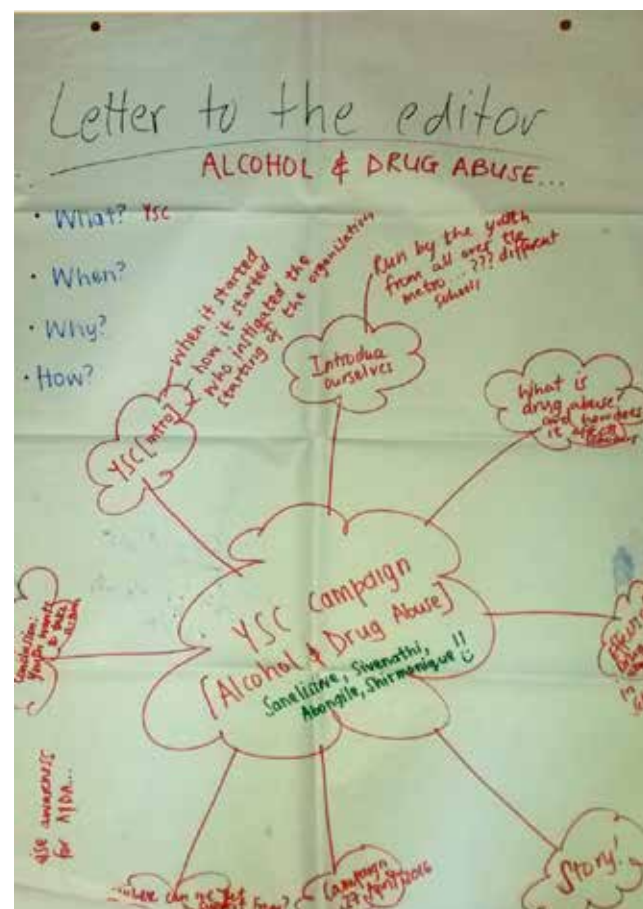 Letter to the editor
ALCOHOL & DRUG ABUSE...
• What? YSC
• When?
• Why?
• How?
YSC [intro]
when it started
how it started
who instigated the
starting of the organisation
Introduce
ourselves
Run by the youth
from all over the
metro...??? different
schools
What is
drug abuse?
and how does
it affect
YSC Campaign
[Alcohol & Drug Abuse]
Sanelisiwe, Sivenathi,
Abongile, Shirmonique!!
Conclusion:
Youth wants
to take
action
awareness
for A/DA...
where can we get
from?
Campaign
27 April 2016
Story!